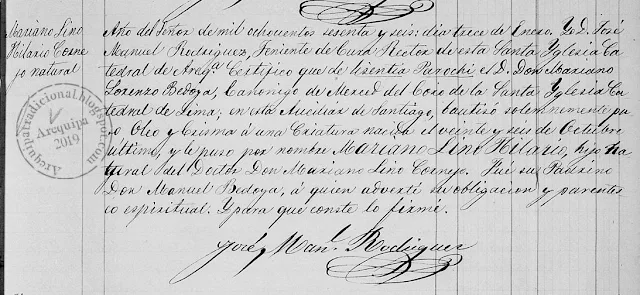 Mariano Lino
Hilario Corne
jo natural
Año del Señor de mil ochocientos sesenta y seis: dia trece de Enero. Yo D. José
Manuel Rodriguez, Teniente de Cura Rector de esta Santa Yglesia Ca
tedral de Areqª Certifico que de lisentia Parochi el D. Don Mariano
Lorenzo Bedoya, Canónigo de Merced del Coro de la Santa Yglesia Ca
tedral de Lima; en esta Auxiliar de Santiago, bautisó solemnemente pu
so Oleo y Crisma á una Criatura nacida el veinte y seis de Octubre
último, y le puso por nombre Mariano Lino Hilario, hijo na
tural del Doctor Don Mariano Lino Cornejo. Fué su Padrino
Don Manuel Bedoya, á quien advertí su obligacion y parentes
co espiritual. Y para que conste lo firmé.
José Manl. Rodriguez
Arequipatradicional.blogspot.com
Arequipa
2019